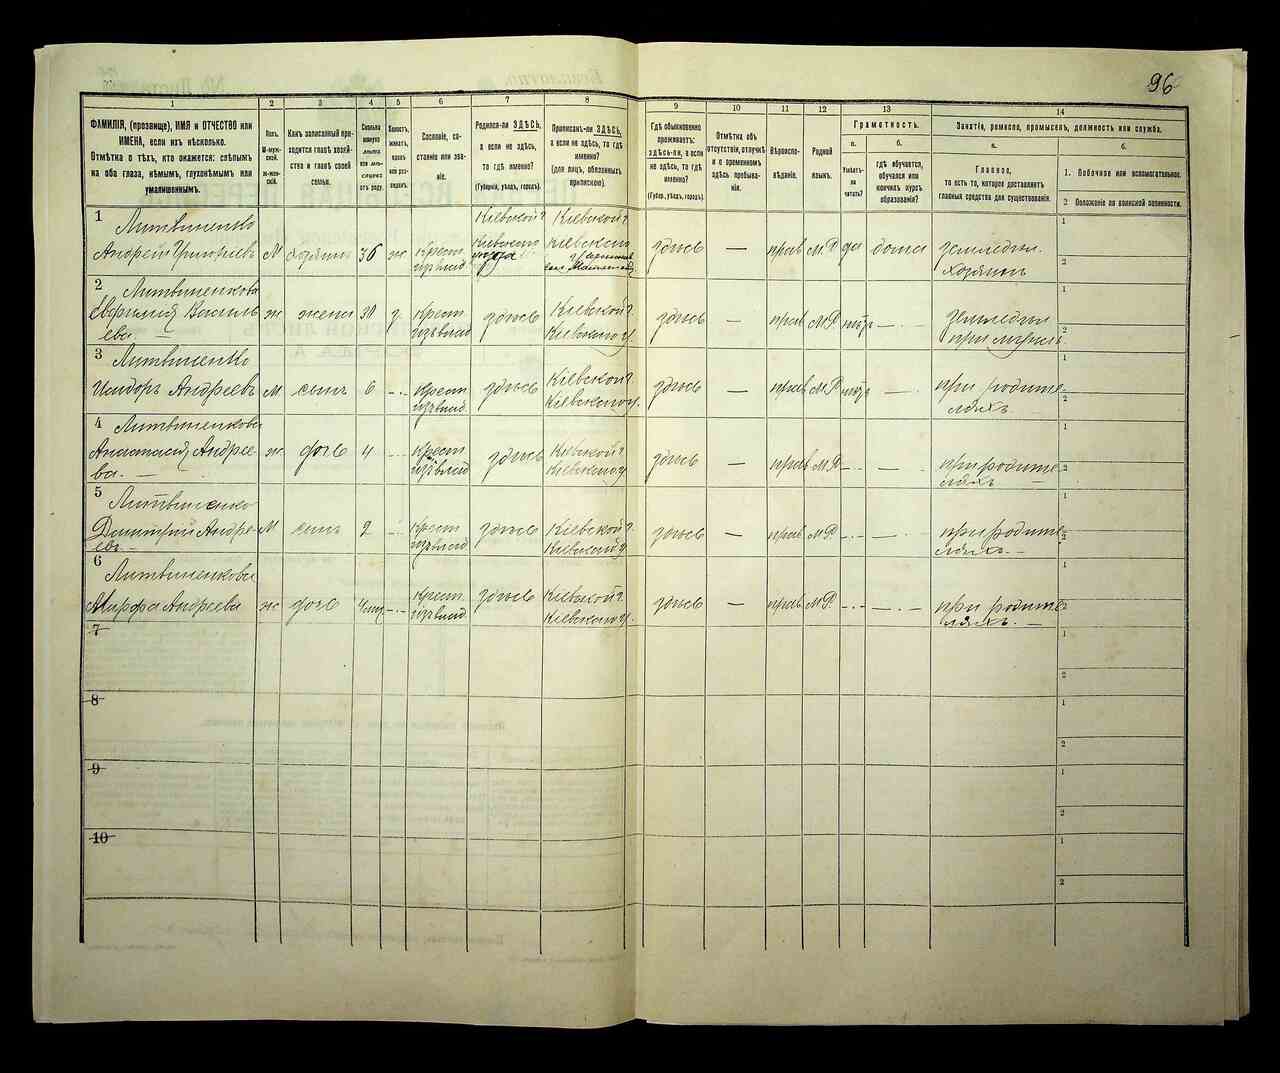 96
1 2 3 4 5 6 7 8 9 10 11 12 13 14
ФАМИЛІЯ, (прозвище), ИМЯ и ОТЧЕСТВО или
ИМЕНА, если ихъ нѣсколько.
Отмѣтка о тѣхъ, кто окажется: слѣпымъ
на оба глаза, нѣмымъ, глухонѣмымъ или
умалишеннымъ.
Полъ.
М-муж-
ской.
Ж-жен-
скій.
Какъ записанный при-
ходится главѣ хозяй-
ства и главѣ своей
семьи.
Сколько
минуло
лѣтъ
или мѣ-
сяцевъ
отъ роду.
Холостъ,
женатъ,
вдовъ
или раз-
веденъ.
Сословіе, со-
стояніе или зва-
ніе.
Родился-ли ЗДѢСЬ,
а если не здѣсь,
то гдѣ именно?
(Губернія, уѣздъ, городъ).
Приписанъ-ли ЗДѢСЬ,
а если не здѣсь, то гдѣ
именно?
(для лицъ, обязанныхъ
припискою).
Гдѣ обыкновенно
проживаетъ:
здѣсь-ли, а если
не здѣсь, то гдѣ
именно?
(Губер., уѣздъ, городъ).
Отмѣтка объ
отсутствіи, отлучкѣ
и о временномъ
здѣсь пребыва-
ніи.
Вѣроиспо-
вѣданіе.
Родной
языкъ.
Грамотность.
а.
Умѣетъ-
ли
читать?
б.
гдѣ обучается,
обучался или
кончилъ курсъ
образованія?
Занятіе, ремесло, промыселъ, должность или служба.
а.
Главное,
то есть то, которое доставляетъ
главныя средства для существованія.
б.
1. Побочное или вспомогательное.
2 Положеніе по воинской повинности.
1 Литвиненко Кіевской г. Кіевской г. 1
Андрей Григорьевъ М хозяинъ 36 ж Крест. здѣсь — прав М.Р. да дома земледѣл. 2
хозяинъ
2 Литвиненкова 1
Евфимія Василь ж жена 30 з Крест. здѣсь Кіевской г. здѣсь — прав М.Р. — земледѣл. 2
ева. — Кіевскаго у.
3 Литвиненко Кіевской г. 1
Исидоръ Андреевъ М сынъ 6 — Крест. здѣсь Кіевскаго у. здѣсь — прав М.Р. — при родите 2
ляхъ
4 Литвиненкова 1
Анастасія Андрее ж дочь 4 — Крест. здѣсь Кіевской г. здѣсь — прав М.Р. — — при родите 2
ва. — Кіевскаго у ляхъ —
5 Литвиненко 1
Дмитрій Андре М сынъ 2 — Крест. здѣсь Кіевской г. здѣсь — прав М.Р. — — при родите 2
евъ — Кіевскаго у ляхъ. —
6 Литвиненкова Кіевской г. 1
Марфа Андреева ж дочь — Крест. здѣсь Кіевскаго у. здѣсь — прав М.Р. — — при родите 2
ляхъ. —
7 1
2
8 1
2
9 1
2
10 1
2